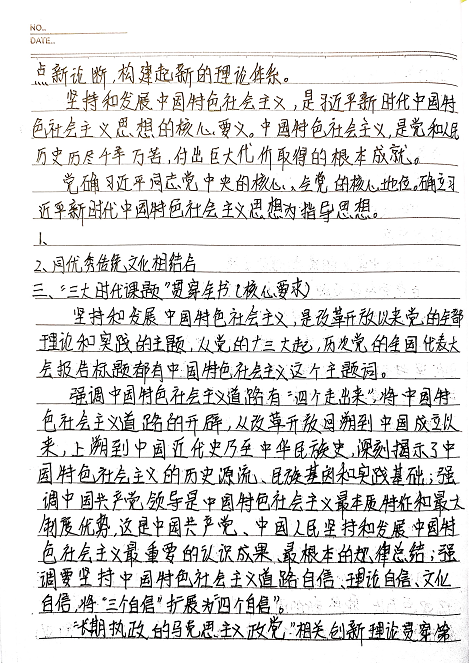 NO.
DATE.
点新论断,构建起新的理论体系。
坚持和发展中国特色社会主义,是习近平新时代中国特
色社会主义思想的核心要义。中国特色社会主义,是党和人民
历史历尽千辛万苦,付出巨大代价取得的根本成就。
党确习近平同志党中央的核心、全党的核心地位。确立习
近平新时代中国特色社会主义思想为指导思想。
1、
2、同优秀传统文化相结合
三、“三大时代课题”贯穿全书(核心要求)
坚持和发展中国特色社会主义,是改革开放以来党的全部
理论和实践的主题,从党的十三大起,历次党的全国代表大
会报告标题都有中国特色社会主义这个主题词。
强调中国特色社会主义道路有“四个走出来”,将中国特
色社会主义道路的开辟,从改革开放回溯到中国成立以
来,上溯到中国近代史乃至中华民族史,深刻揭示了中
国特色社会主义的历史源流、民族基因和实践基础;强
调中国共产党领导是中国特色社会主义最本质特征和最大
制度优势,这是中国共产党、中国人民坚持和发展中国特
色社会主义最重要的认识成果、最根本的规律总结;强
调要坚持中国特色社会主义道路自信、理论自信、文化
自信,将“三个自信”扩展为“四个自信”。
“长期执政的马克思主义政党”相关创新理论贯穿第